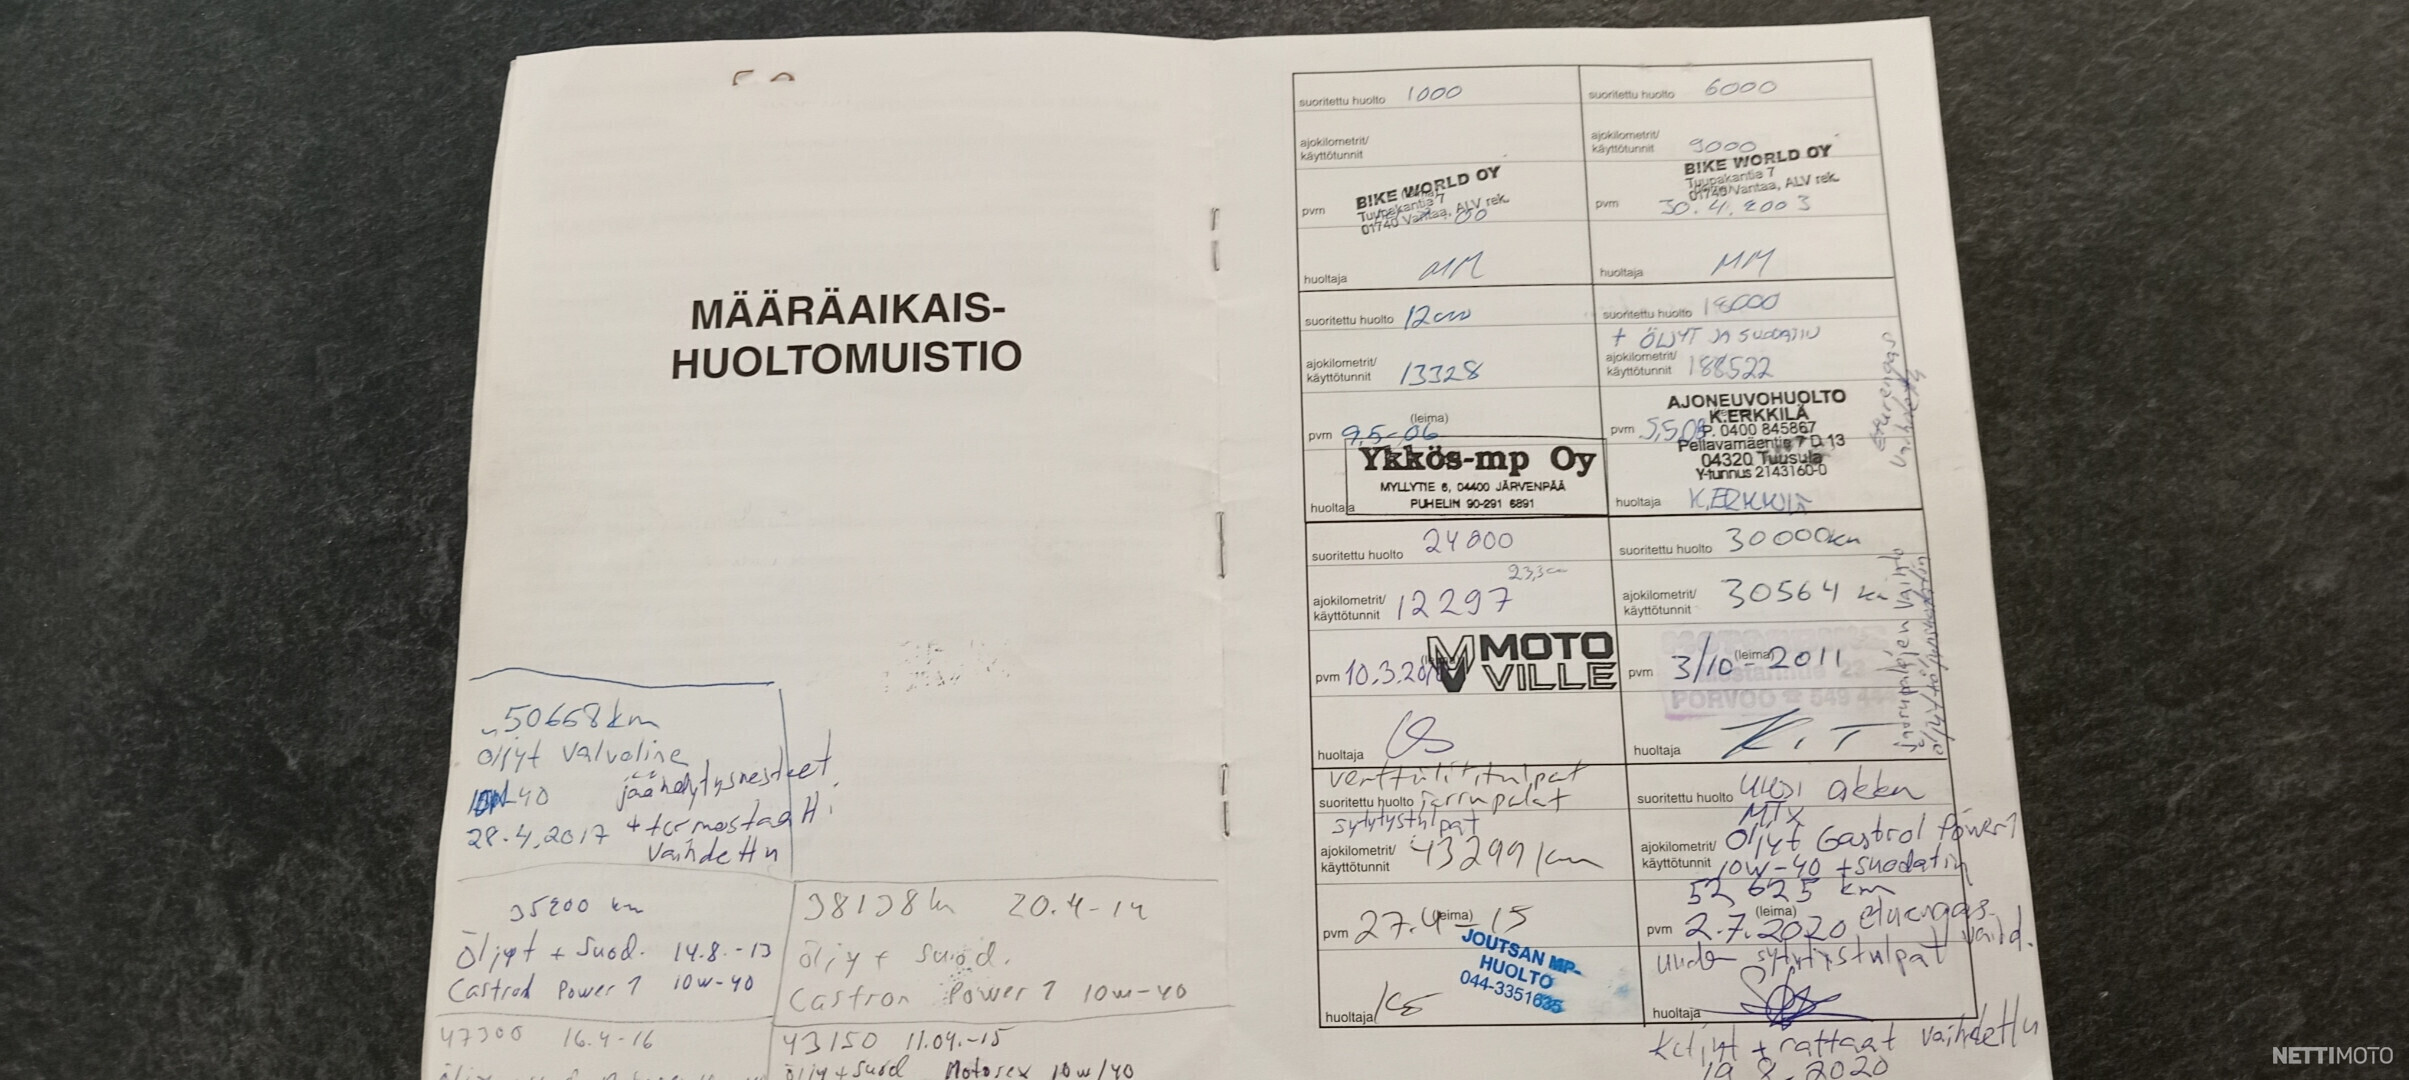 MÄÄRÄAIKAIS-
HUOLTOMUISTIO
50668 km
öljyt valvoline
10W-40 jäähdytysnesteet
28.4.2017 + termostaatti
vaihdettu
35200 km
Öljyt + Suod. 14.8.-13
Castrol Power 1 10w-40
38138 km 20.4-14
öljy + suod.
Castron Power 1 10w-40
47300 16.4-16
43150 11.04.-15
öljy+suod Motorex 10w/40
suoritettu huolto 1000
ajokilometrit/
käyttötunnit
BIKE WORLD OY
Tuupakantia 7
01740 Vantaa, ALV rek.
pvm
huoltaja MM
suoritettu huolto 6000
ajokilometrit/
käyttötunnit 9000
BIKE WORLD OY
Tuupakantia 7
01740 Vantaa, ALV rek.
pvm 30.4.2003
huoltaja MM
suoritettu huolto 12000
ajokilometrit/
käyttötunnit 13328
(leima)
pvm 9,5-06
Ykkös-mp Oy
MYLLYTIE 6, 04400 JÄRVENPÄÄ
PUHELIN 90-291 6891
huoltaja
suoritettu huolto 18000
+ ÖLJYT JA SUODATIN
ajokilometrit/
käyttötunnit 188522
AJONEUVOHUOLTO
K.ERKKILÄ
pvm P. 0400 845867
Pellavamäentie 7 D 13
04320 Tuusula
Y-tunnus 2143160-0
huoltaja K.ERKKILÄ
eturengas
vaihdettu
suoritettu huolto 24000
ajokilometrit/
käyttötunnit 12297
MOTO
VILLE
pvm 10.3.20
huoltaja
suoritettu huolto 30000km
ajokilometrit/
käyttötunnit 30564 km
(leima)
pvm 3/10-2011
PORVOO ☎ 549
huoltaja K.T
jarrupalojen vaihto
suoritettu huolto jarrupalat
sytytystulpat
ajokilometrit/
käyttötunnit 43299 km
(leima)
pvm 27.4-15
JOUTSAN MP-
HUOLTO
044-3351635
huoltaja KS
suoritettu huolto uusi akku
MTX
ajokilometrit/ Öljyt Castrol Power1
käyttötunnit 10W-40 +suodatin
52625 km
(leima)
pvm 2.7.2020 eturengas
vaihd.
uudet sytytystulpat
huoltaja
Ketjut + rattaat vaihdettu
19.8.2020
NETTIMOTO